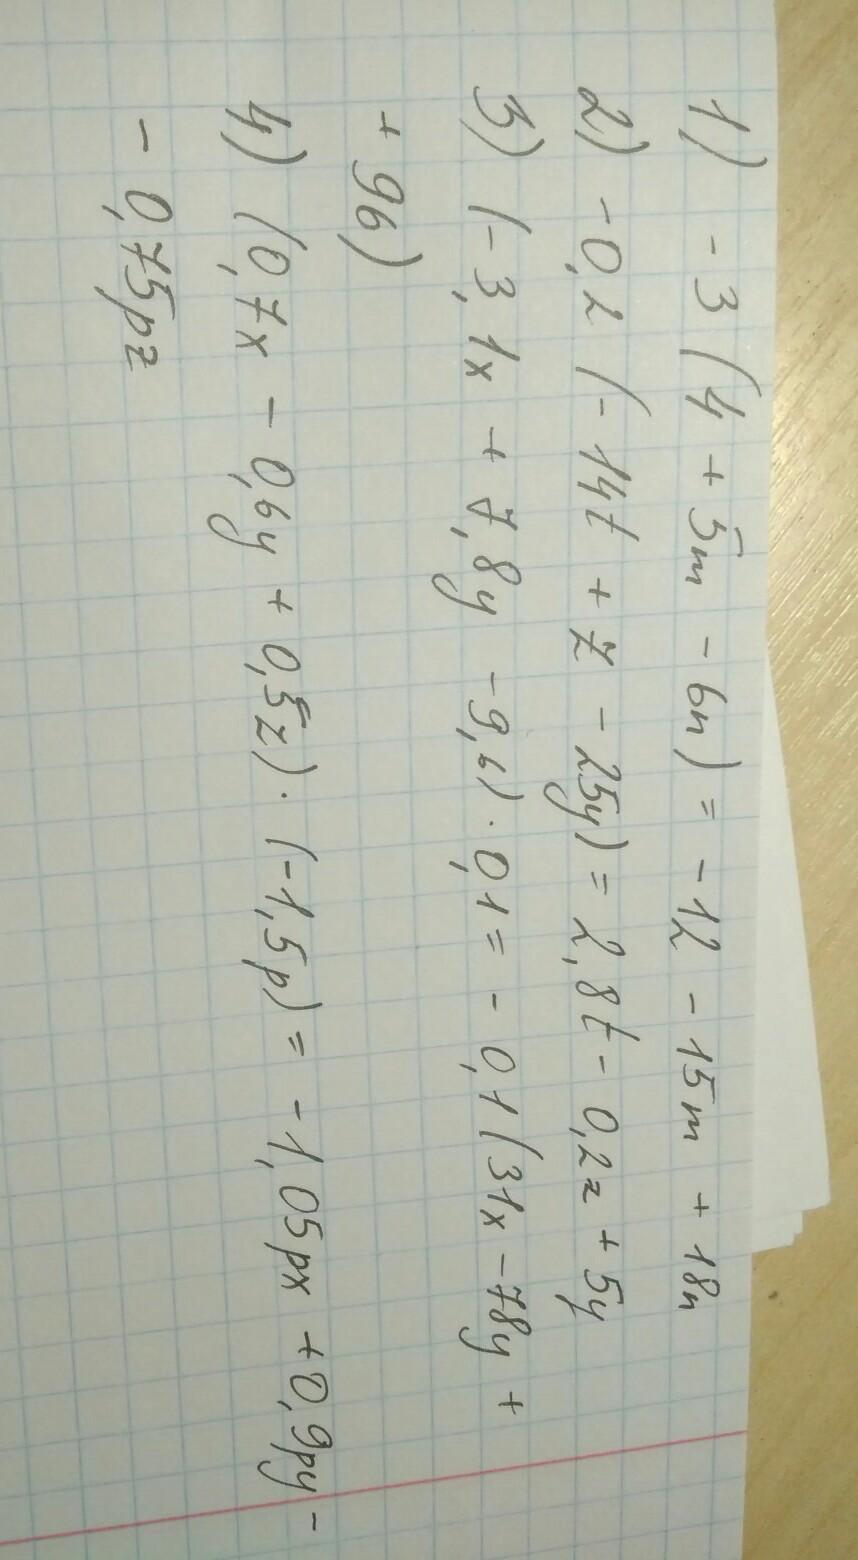 1) -3 (4 + 5m - 6n) = -12 - 15m + 18n
2) -0,2 (-14t + z - 25y) = 2,8t - 0,2z + 5y
3) (-3,1x + 7,8y - 9,6) · 0,1 = - 0,1 (31x - 78y +
+ 96)
4) (0,7x - 0,6y + 0,5z) · (-1,5p) = -1,05px + 0,9py -
- 0,75pz